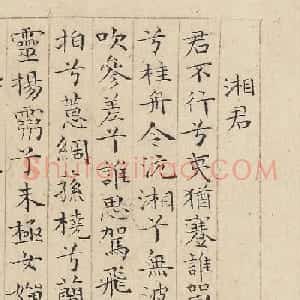 湘君
君不行兮夷猶蹇誰
兮桂舟令沅湘兮無波
吹參差兮誰思駕飛
柏兮蕙綢孫橈兮蘭
靈揚靈兮未極女嬋